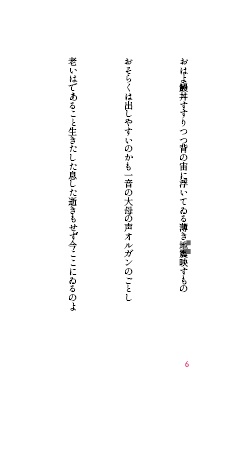 おはよ鰻丼すすりつつ背の宙に浮いてゐる薄き震映すもの
おそらくは出しやすいのかも一音の大母の声オルガンのごとし
老いはてあること生きたした息した逝きもせず今ここにゐるのよ
6